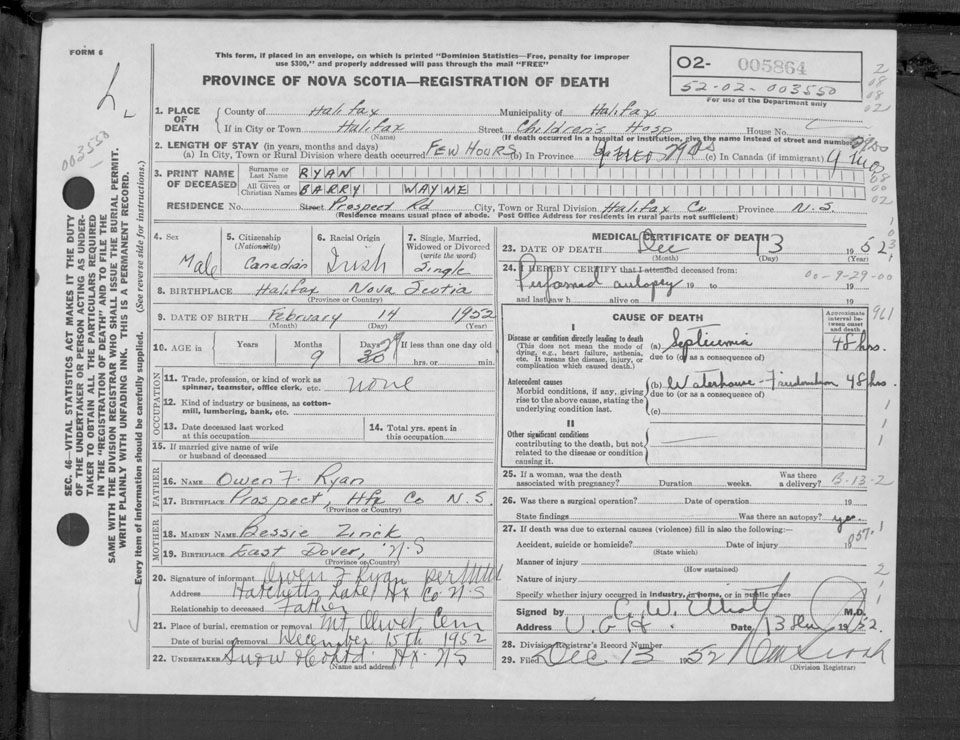 FORM 6
This form, if placed in an envelope, on which is printed "Dominion Statistics—Free, penalty for improper
use $300," and properly addressed will pass through the mail "FREE"
PROVINCE OF NOVA SCOTIA—REGISTRATION OF DEATH
O2- 005864
52-02-003550
For use of the Department only
003550
SEC. 46—VITAL STATISTICS ACT MAKES IT THE DUTY
OF THE UNDERTAKER OR PERSON ACTING AS UNDER-
TAKER TO OBTAIN ALL THE PARTICULARS REQUIRED
IN THE "REGISTRATION OF DEATH" AND TO FILE THE
SAME WITH THE DIVISION REGISTRAR WHO SHALL ISSUE THE BURIAL PERMIT.
WRITE PLAINLY WITH UNFADING INK. THIS IS A PERMANENT RECORD.
Every item of information should be carefully supplied. (See reverse side for instructions.)
1. PLACE OF DEATH
County of Halifax Municipality of Halifax
If in City or Town Halifax Street Children's Hosp House No.
(Name) (If death occurred in a hospital or institution, give the name instead of street and number)
2. LENGTH OF STAY (in years, months and days)
(a) In City, Town or Rural Division where death occurred FEW HOURS (b) In Province 29 Ds (c) In Canada (if immigrant) 9 mos
3. PRINT NAME OF DECEASED
Surname or Last Name RYAN
All Given or Christian Names BARRY WAYNE
RESIDENCE No. Street Prospect Rd City, Town or Rural Division Halifax Co Province N.S.
(Residence means usual place of abode. Post Office Address for residents in rural parts not sufficient)
4. Sex Male
5. Citizenship (Nationality) Canadian
6. Racial Origin Irish
7. Single, Married, Widowed or Divorced (write the word) Single
8. BIRTHPLACE Halifax Nova Scotia
(Province or Country)
9. DATE OF BIRTH February 14 1952
(Month) (Day) (Year)
10. AGE in Years Months 9 Days 30 29 If less than one day old
hrs. or min.
OCCUPATION
11. Trade, profession, or kind of work as
spinner, teamster, office clerk, etc. none
12. Kind of industry or business, as cotton-
mill, lumbering, bank, etc.
13. Date deceased last worked
at this occupation
14. Total yrs. spent in
this occupation
15. If married give name of wife
or husband of deceased
FATHER
16. NAME Owen F. Ryan
17. BIRTHPLACE Prospect, Hfx Co N.S.
(Province or Country)
MOTHER
18. MAIDEN NAME Bessie Zinck
19. BIRTHPLACE East Dover, N.S
(Province or Country)
20. Signature of informant Owen F Ryan per
Address Hatchetts Lake Hx Co N.S
Relationship to deceased Father
21. Place of burial, cremation or removal Mt Olivet Cem
Date of burial or removal December 15th 1952
22. UNDERTAKER Snow & Co Ltd Hx NS
(Name and address)
MEDICAL CERTIFICATE OF DEATH
23. DATE OF DEATH Dec 13 1952
(Month) (Day) (Year)
24. I HEREBY CERTIFY that I attended deceased from:
Performed autopsy 19 to 19
and last saw h alive on 19
00-9-29-00
CAUSE OF DEATH
Approximate interval between onset and death
961
I
Disease or condition directly leading to death
(This does not mean the mode of
dying, e.g., heart failure, asthenia,
etc. It means the disease, injury, or
complication which caused death.)
(a) Septicemia 48 hrs.
due to (or as a consequence of)
Antecedent causes
Morbid conditions, if any, giving
rise to the above cause, stating the
underlying condition last.
(b) Waterhouse-Friedrichsen 48 hrs
due to (or as a consequence of)
(c)
II
Other significant conditions
contributing to the death, but not
related to the disease or condition
causing it.
25. If a woman, was the death
associated with pregnancy? Duration weeks. Was there
a delivery? B-13-2
26. Was there a surgical operation? Date of operation 19
State findings Was there an autopsy? yes
27. If death was due to external causes (violence) fill in also the following:—
057
Accident, suicide or homicide? Date of injury 19
(State which)
Manner of injury
(How sustained)
Nature of injury
Specify whether injury occurred in industry, in home, or in public place
Signed by C. W. Elliot M.D.
Address V.G.H. Date 13 Dec 1952.
28. Division Registrar's Record Number
29. Filed Dec 13 1952
(Division Registrar)